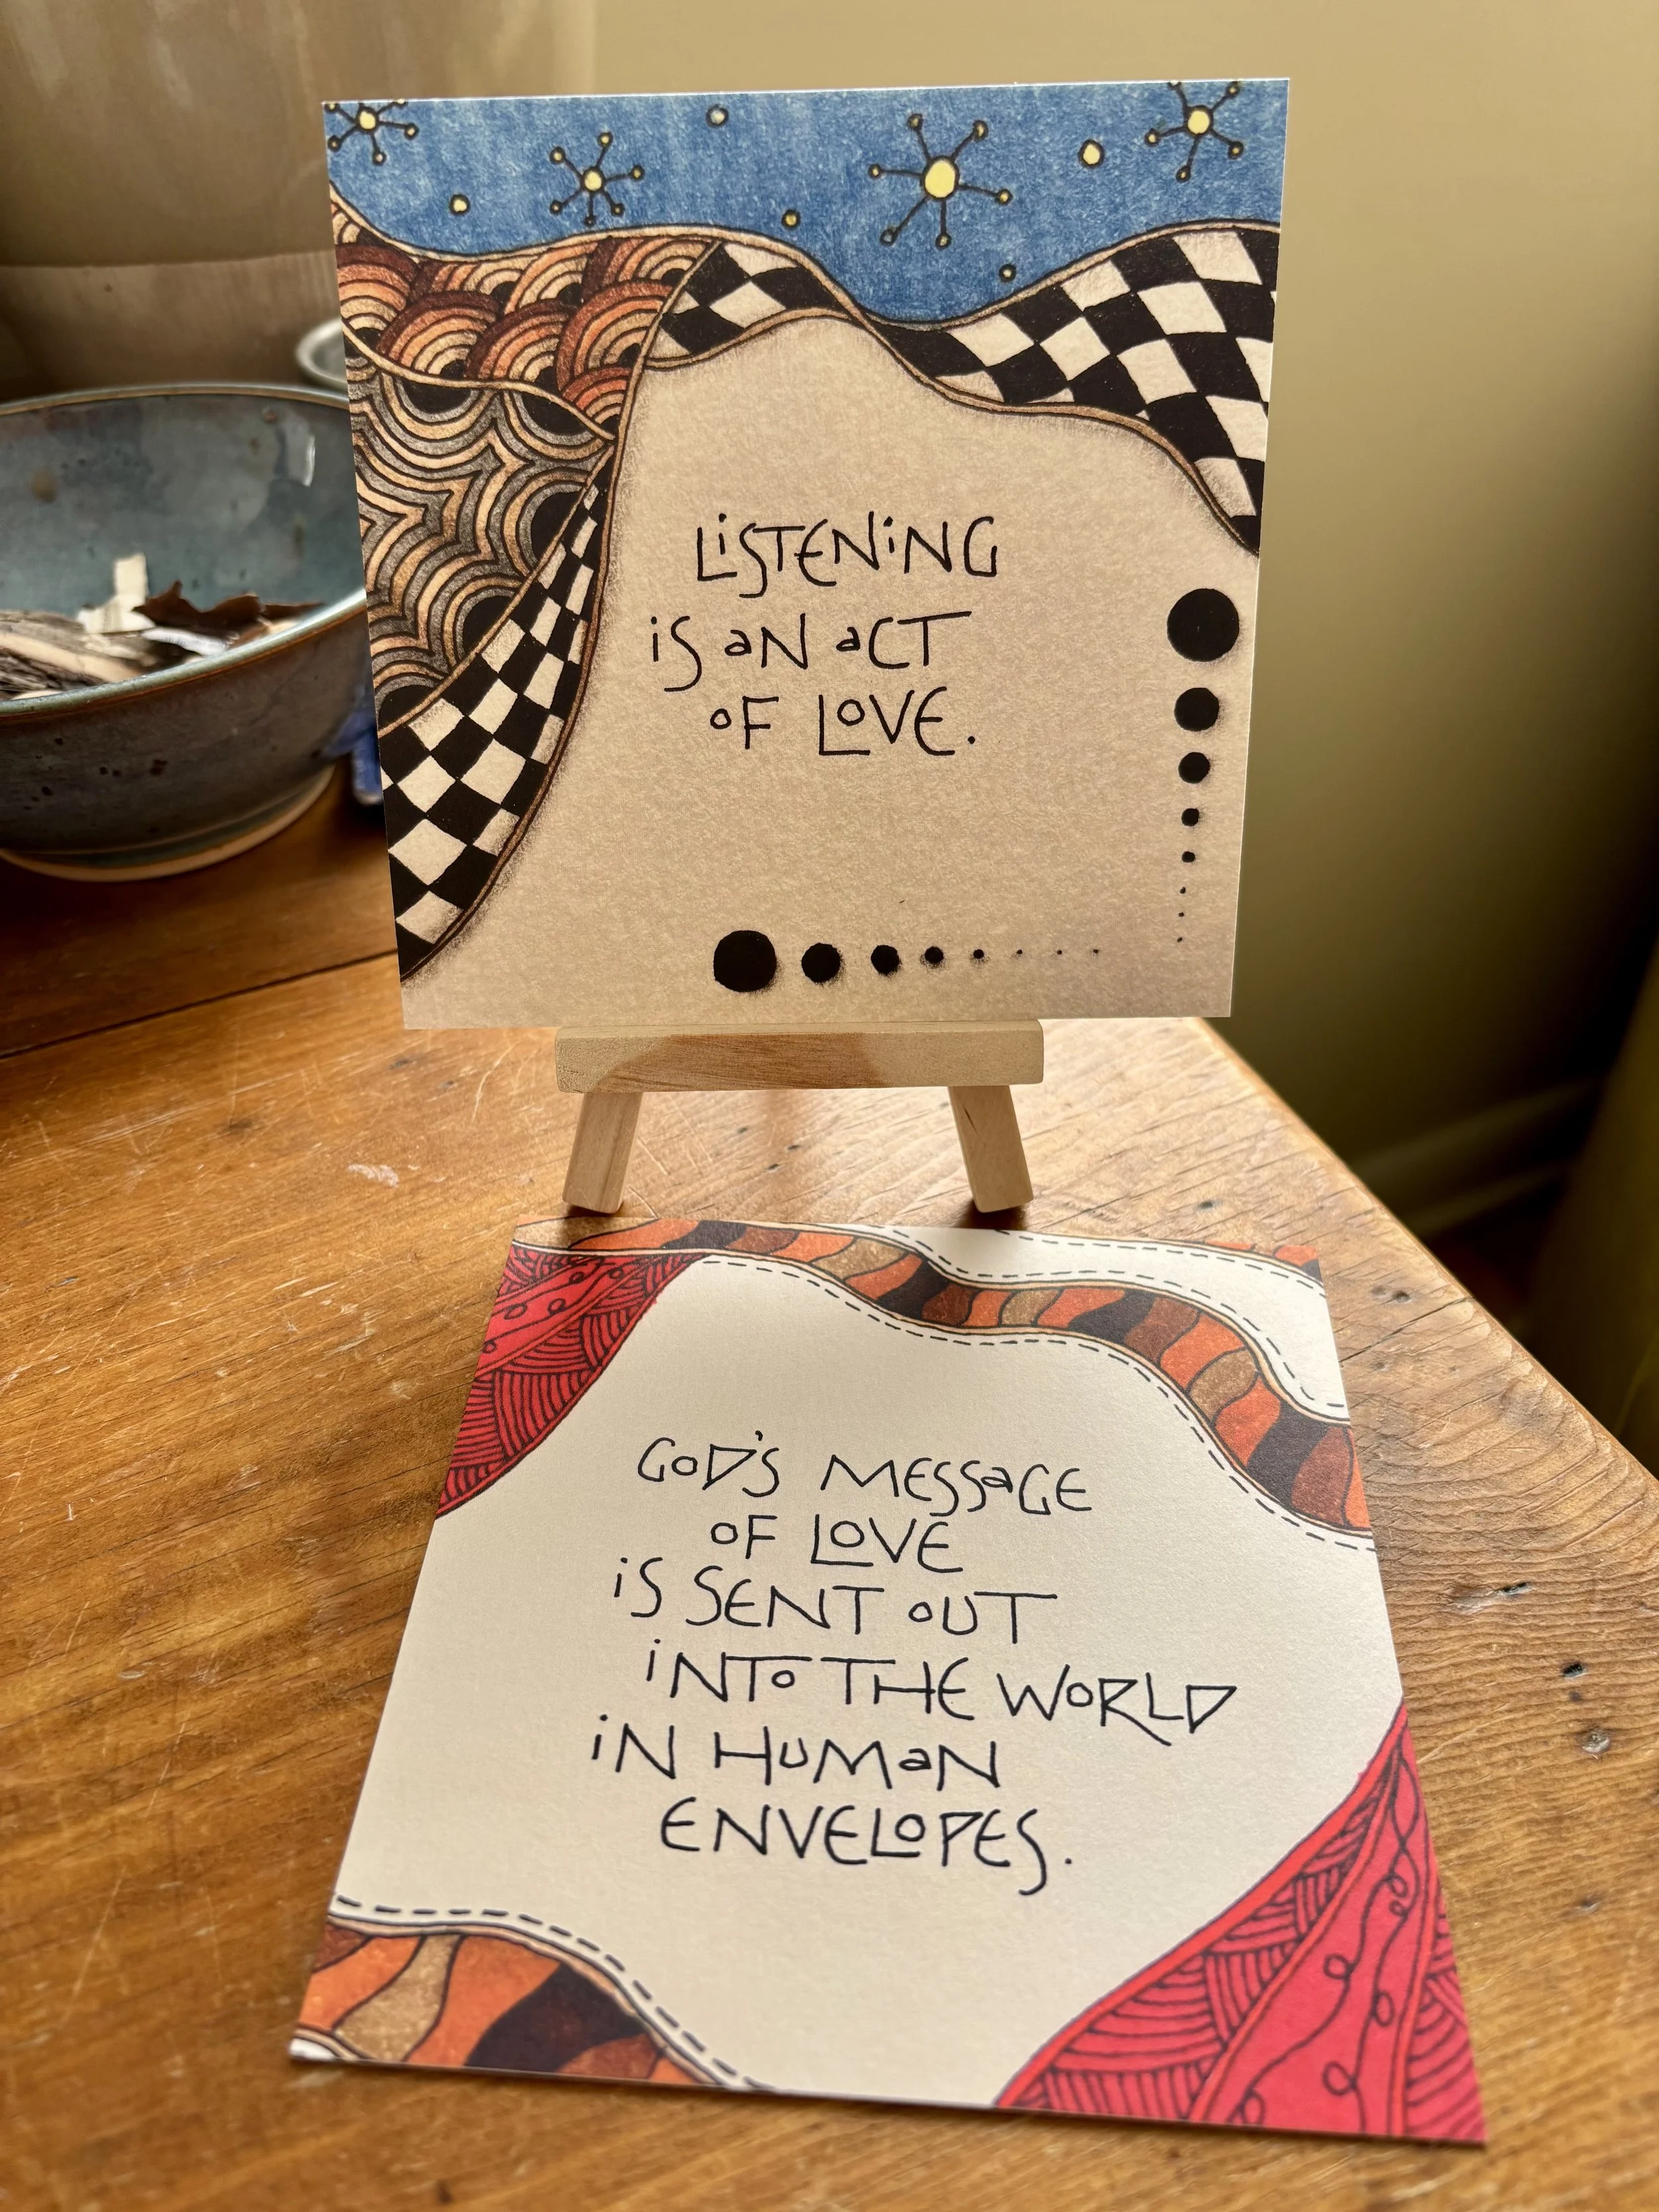 LiSTENiNG
iS aN aCT
oF LoVE.
GoD'S MESSaGE
oF LoVE
iS SENT oUT
iNTo THE WoRLD
iN HuMaN
ENVELoPES.